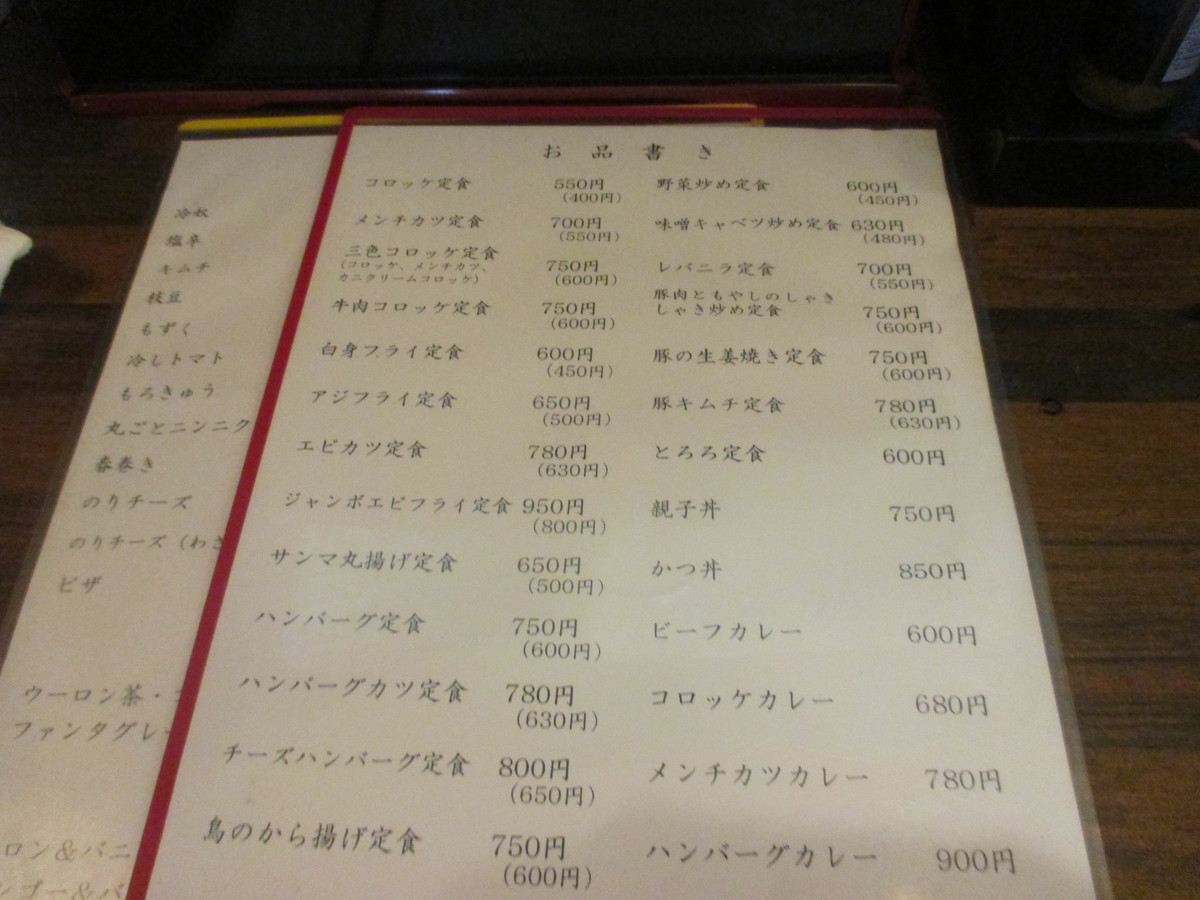 お品書き
コロッケ定食 550円
(400円)
メンチカツ定食 700円
(550円)
三色コロッケ定食 750円
(コロッケ、メンチカツ、
カニクリームコロッケ) (600円)
牛肉コロッケ定食 750円
(600円)
白身フライ定食 600円
(450円)
アジフライ定食 650円
(500円)
エビカツ定食 780円
(630円)
ジャンボエビフライ定食 950円
(800円)
サンマ丸揚げ定食 650円
(500円)
ハンバーグ定食 750円
(600円)
ハンバーグカツ定食 780円
(630円)
チーズハンバーグ定食 800円
(650円)
鳥のから揚げ定食 750円
(600円)
野菜炒め定食 600円
(450円)
味噌キャベツ炒め定食 630円
(480円)
レバニラ定食 700円
(550円)
豚肉ともやしのしゃき
しゃき炒め定食 750円
(600円)
豚の生姜焼き定食 750円
(600円)
豚キムチ定食 780円
(630円)
とろろ定食 600円
親子丼 750円
かつ丼 850円
ビーフカレー 600円
コロッケカレー 680円
メンチカツカレー 780円
ハンバーグカレー 900円
冷奴
塩辛
キムチ
枝豆
もずく
冷しトマト
もろきゅう
丸ごとニンニク
春巻き
のりチーズ
のりチーズ（わさ
ピザ
ウーロン茶・
ファンタグレ
ロン＆バニ
ンゴー＆バ